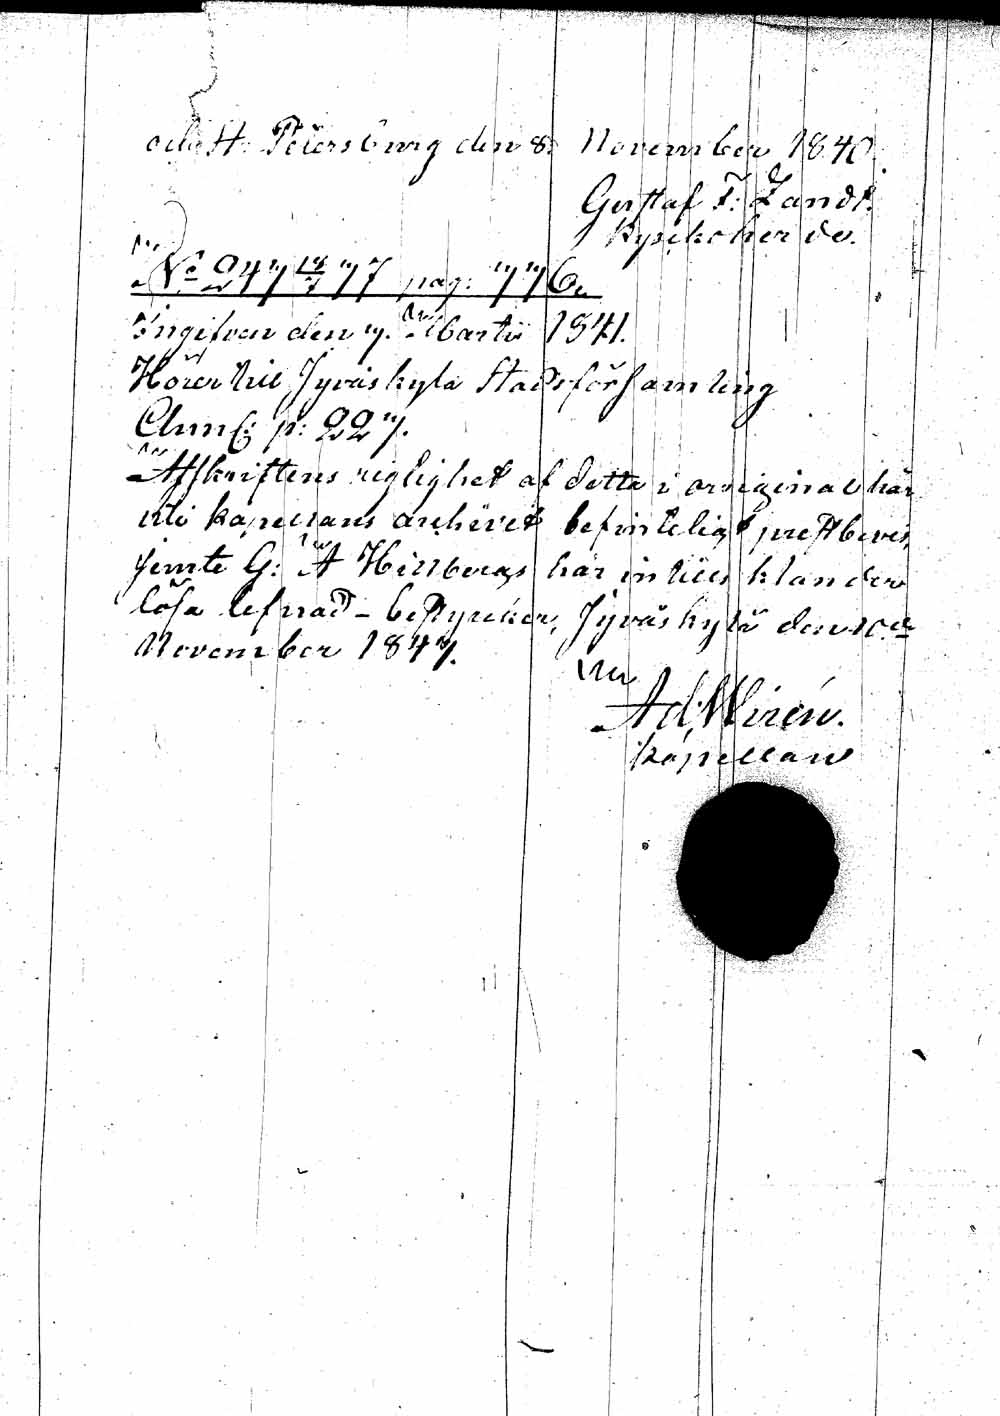 och St. Petersburg den 8. November 1840.
Gustaf F: Zandt.
Kyrkoherde.
No 247 18/7 77 pag: 776.
Ingifven den 7. Martii 1841.
Hörer till Jyväskylä Stadsförsamling
Ann: p: 227.
Afskriftens riglighet af detta i original här
uti kapellans archivet befinteligt prestbevis,
jemte G: A Hillbergs här intills klander
lösa lefnad - bestyrcker, Jyväskylä den 10de
November 1847.
Ad. Wirén.
kapellan